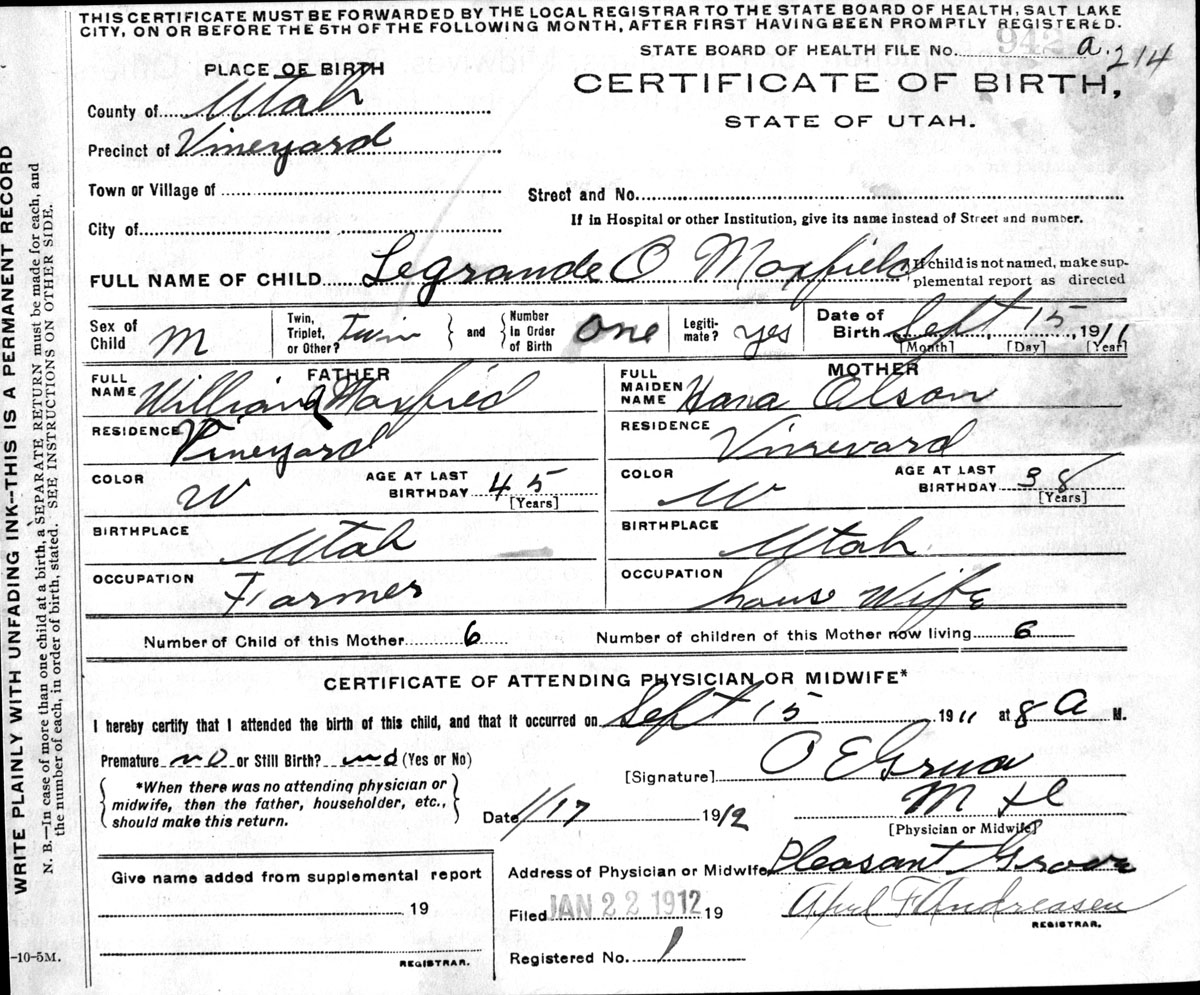 THIS CERTIFICATE MUST BE FORWARDED BY THE LOCAL REGISTRAR TO THE STATE BOARD OF HEALTH, SALT LAKE
CITY, ON OR BEFORE THE 5TH OF THE FOLLOWING MONTH, AFTER FIRST HAVING BEEN PROMPTLY REGISTERED.
STATE BOARD OF HEALTH FILE No. 942 a. 214
PLACE OF BIRTH
CERTIFICATE OF BIRTH,
STATE OF UTAH.
County of Utah
Precinct of Vineyard
Town or Village of
Street and No.
If in Hospital or other Institution, give its name instead of Street and number.
City of
FULL NAME OF CHILD Legrande O Maxfield
If child is not named, make sup-
plemental report as directed
Sex of Child M
Twin, Triplet, or Other? twin
and
Number in Order of Birth one
Legiti-mate? yes
Date of Birth Sept 15, 1911
[Month] [Day] [Year]
FATHER
FULL NAME William Maxfied
RESIDENCE Vineyard
COLOR W
AGE AT LAST BIRTHDAY 45
[Years]
BIRTHPLACE Utah
OCCUPATION Farmer
MOTHER
FULL MAIDEN NAME Hana Olson
RESIDENCE Vineyard
COLOR W
AGE AT LAST BIRTHDAY 38
[Years]
BIRTHPLACE Utah.
OCCUPATION house Wife
Number of Child of this Mother 6
Number of children of this Mother now living 6
CERTIFICATE OF ATTENDING PHYSICIAN OR MIDWIFE*
I hereby certify that I attended the birth of this child, and that it occurred on Sept 15 1911 at 8 a M.
Premature no or Still Birth? no (Yes or No)
*When there was no attending physician or
midwife, then the father, householder, etc.,
should make this return.
[Signature] O E Grua
M D
[Physician or Midwife]
Date 1/17 1912
Address of Physician or Midwife Pleasant Grove
Filed JAN 22 1912 19
F Andreasen
REGISTRAR.
Registered No. 1
Give name added from supplemental report
19
REGISTRAR.
-10-5M.
WRITE PLAINLY WITH UNFADING INK--THIS IS A PERMANENT RECORD
N. B.—In case of more than one child at a birth, a SEPARATE RETURN must be made for each, and
the number of each, in order of birth, stated. SEE INSTRUCTIONS ON OTHER SIDE.